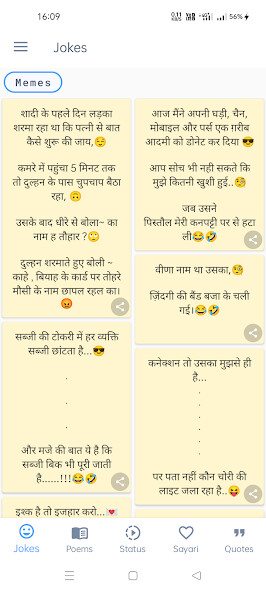 16:09
0.11 KB/S
56%
Jokes
Memes
शादी के पहले दिन लड़का
शरमा रहा था कि पत्नी से बात
कैसे शुरू की जाय,😌
कमरे में पहुंचा 5 मिनट तक
तो दुल्हन के पास चुपचाप बैठा
रहा, 🙃
उसके बाद धीरे से बोला~ का
नाम ह तौहार ?🙄
दुल्हन शरमाते हुए बोली ~
काहे , बियाह के कार्ड पर तोहरे
मौसी के नाम छापल रहल का।
😡
सब्जी की टोकरी में हर व्यक्ति
सब्जी छांटता है...😎
.
.
.
और मजे की बात ये है कि
सब्जी बिक भी पूरी जाती
है......!!!😂🤣
इश्क है तो इजहार करो...💌
आज मैंने अपनी घड़ी, चैन,
मोबाइल और पर्स एक ग़रीब
आदमी को डोनेट कर दिया 😎
आप सोच भी नही सकते कि
मुझे कितनी खुशी हुई..🧐
जब उसने
पिस्तौल मेरी कनपट्टी पर से हटा
ली😂🤣
वीणा नाम था उसका,🧐
ज़िंदगी की बैंड बजा के चली
गई।😂🤣
कनेक्शन तो उसका मुझसे ही
है...
.
.
.
.
.
.
पर पता नहीं कौन चोरी की
लाइट जला रहा है..😝
Jokes
Poems
Status
Sayari
Quotes